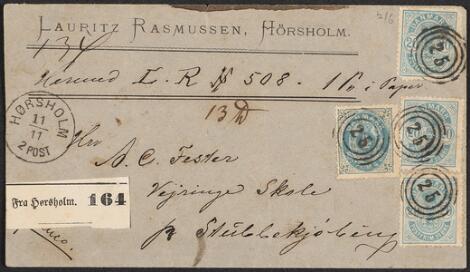 LAURITZ RASMUSSEN, HÖRSHOLM.
Hermed L. R. № 508. 1 Pk i Papir
HØRSHOLM
11/11
2 POST
13
Hr
A. C. Fester
Vejringe Skole
pr Stubbekjöbing
Fra Hørsholm. 164
DANMARK
25
DANMARK
25
25
25